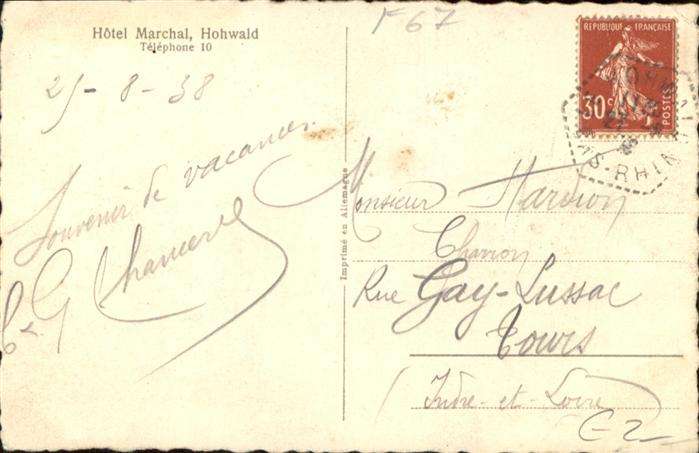 Hôtel Marchal, Hohwald
Téléphone 10
25-8-38
Souvenir de vacances
G Chancerel
Imprimé en Allemagne
F 67
REPUBLIQUE FRANÇAISE
30c
POSTES
BAS-RHIN
Monsieur Hardion
Charron
Rue Gay-Lussac
Tours
Indre-et-Loire